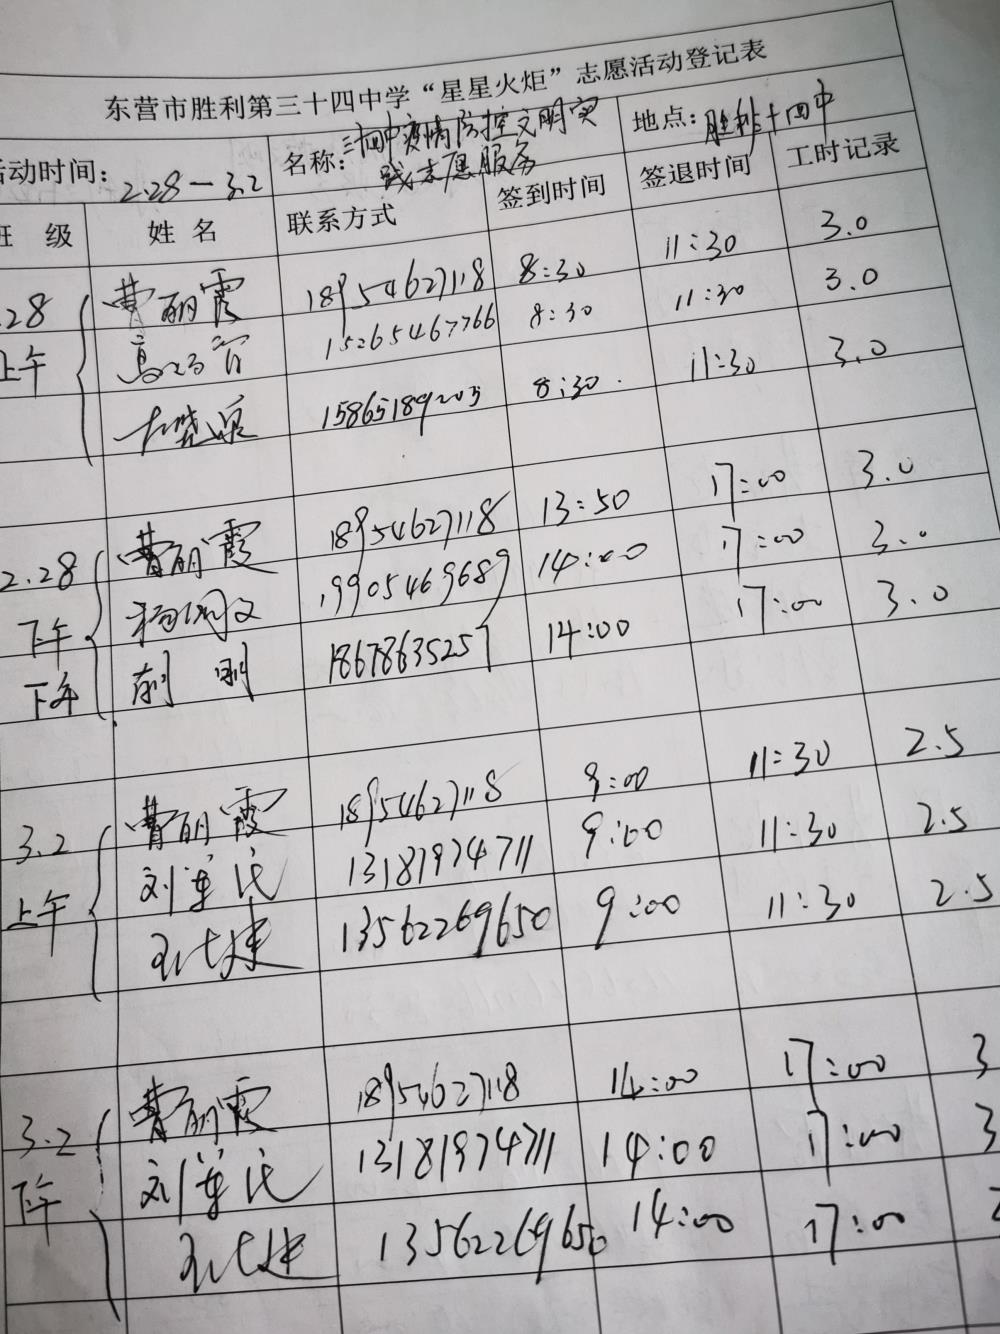 东营市胜利第三十四中学“星星火炬”志愿活动登记表
活动时间: 2.28—3.2 名称: 三十四中疫情防控文明实践志愿服务 地点: 胜利十四中
班 级 姓 名 联系方式 签到时间 签退时间 工时记录
2.28 上午 曹丽霞 18954627118 8:30 11:30 3.0
15265467766 8:30 11:30 3.0
15865189205 8:30 11:30 3.0
2.28 下午 曹丽霞 18954627118 13:50 17:00 3.0
19905469689 14:00 17:00 3.0
下午 18678635257 14:00 17:00 3.0
3.2 上午 曹丽霞 18954627118 9:00 11:30 2.5
刘 13181974711 9:00 11:30 2.5
13562269650 9:00 11:30 2.5
3.2 下午 曹丽霞 18954627118 14:00 17:00 3
刘 13181974711 14:00 17:00 3
13562269650 14:00 17:00